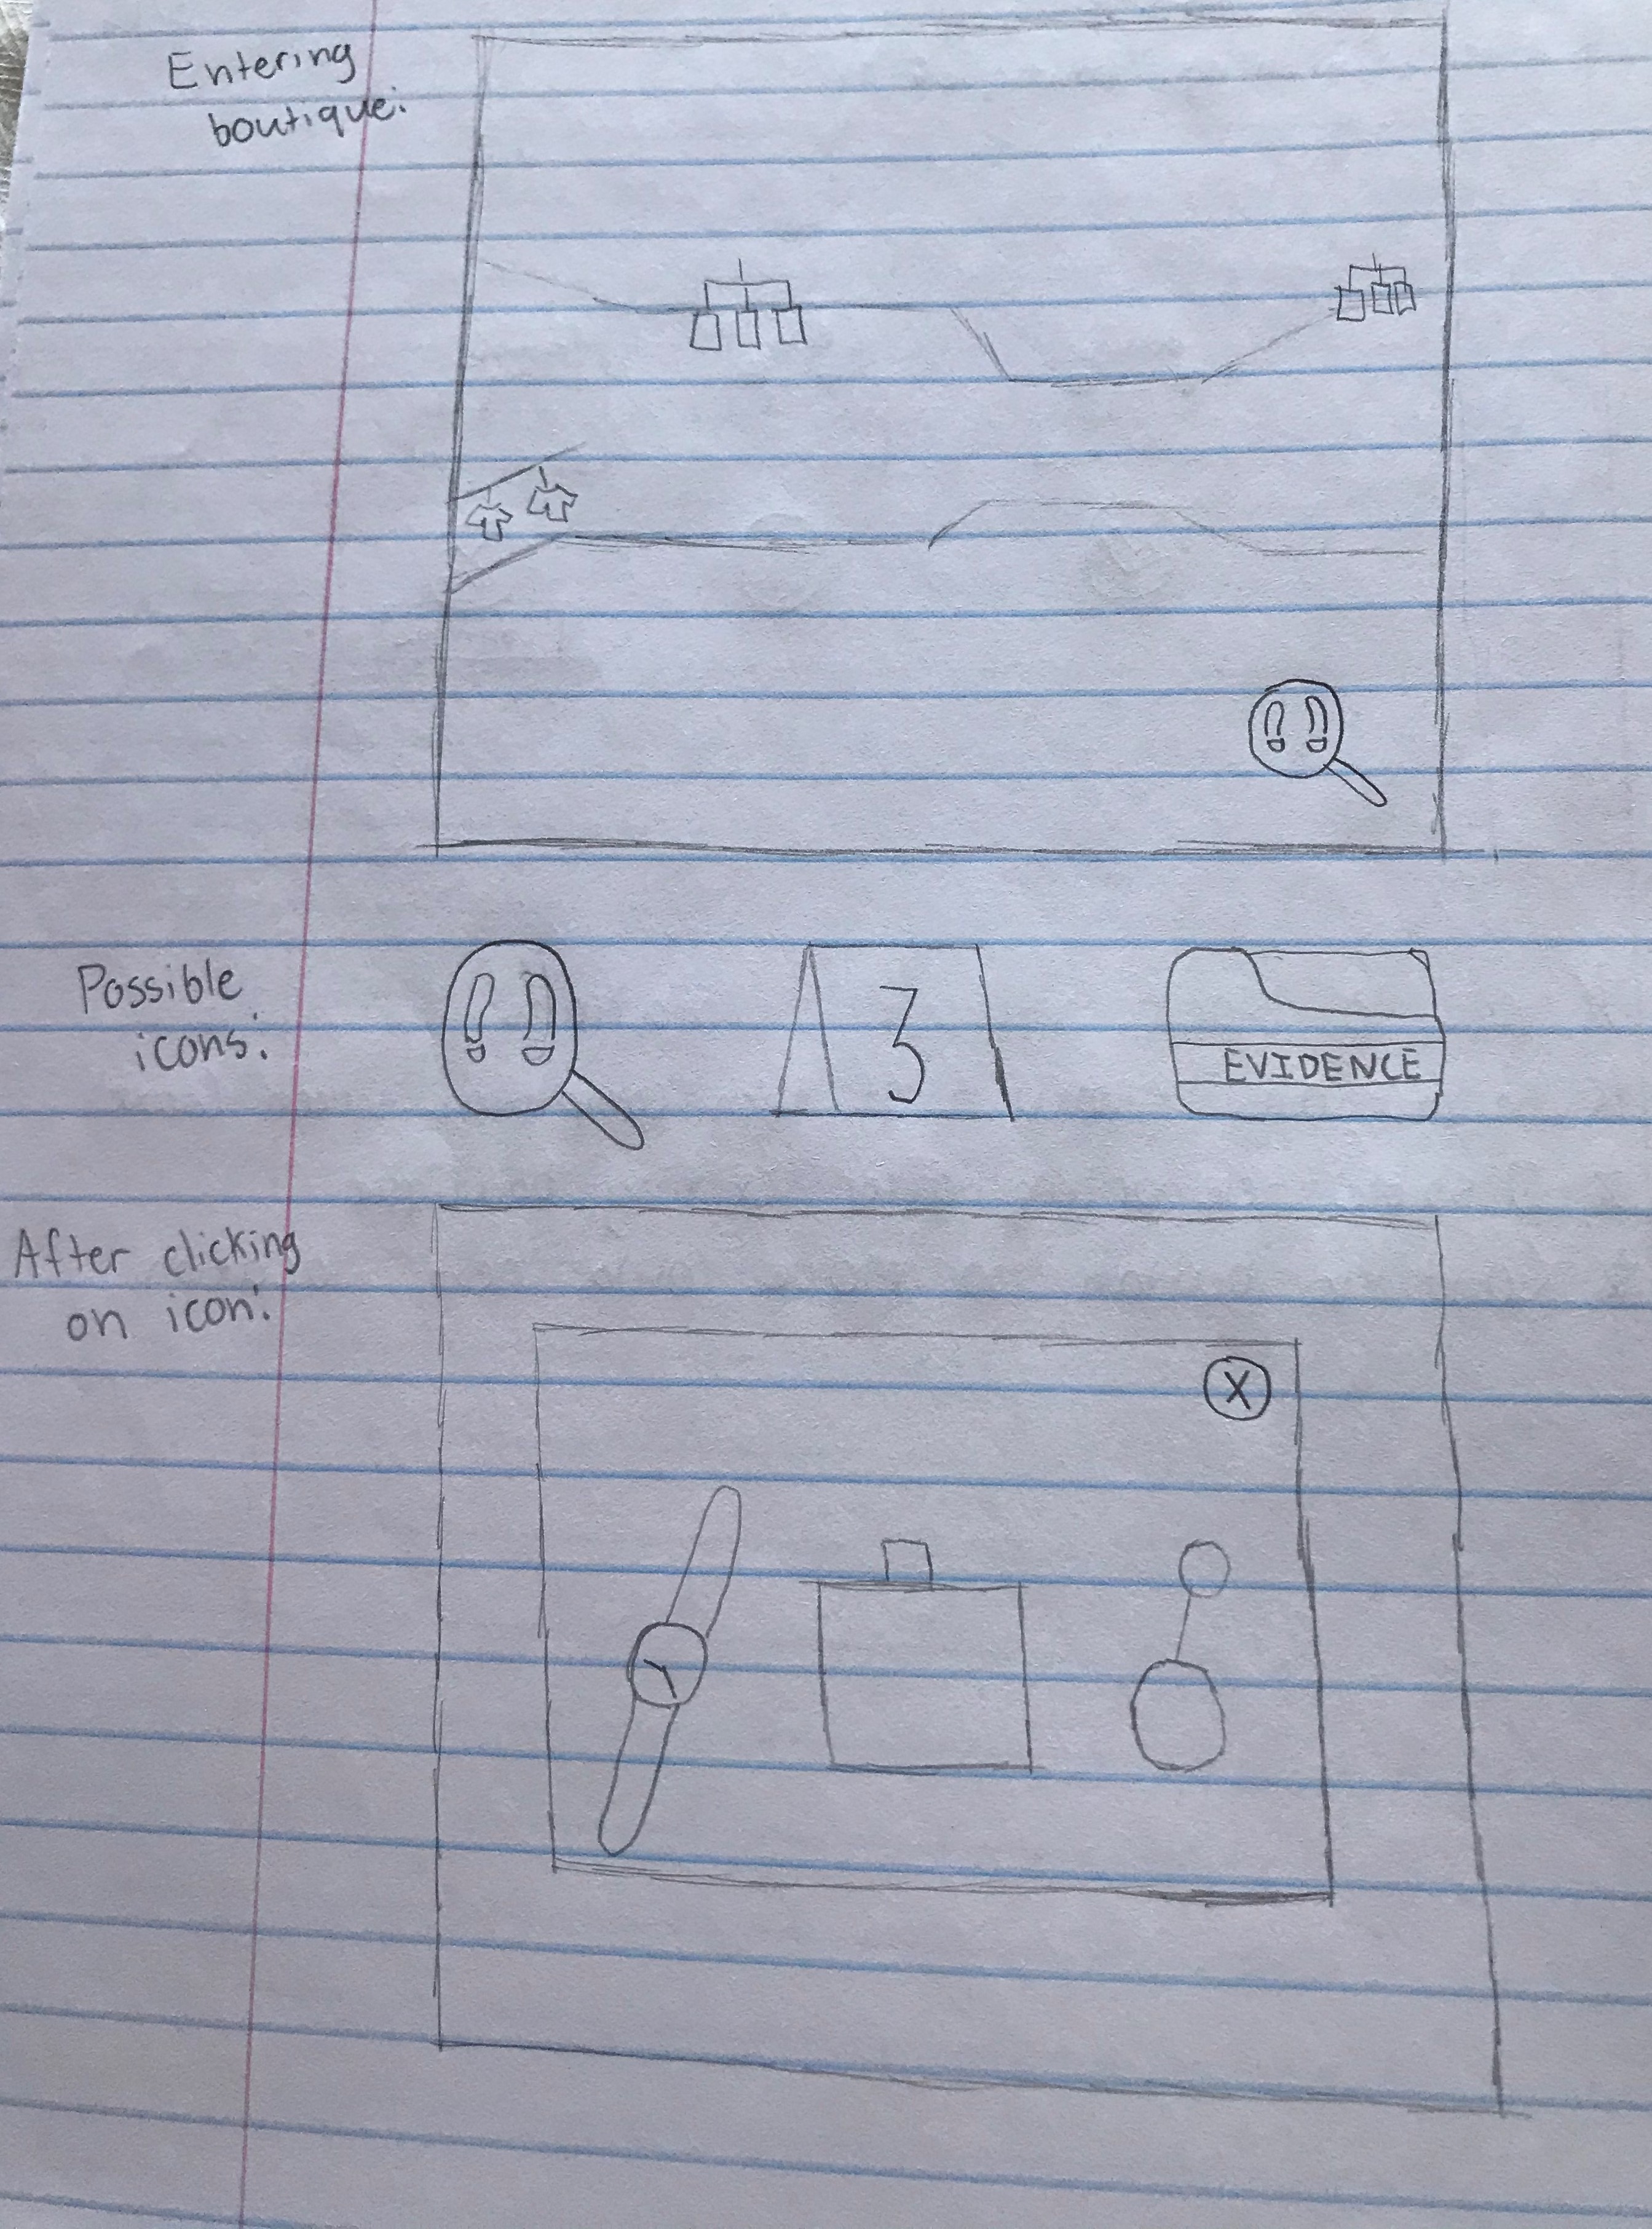 Entering
boutique:
Possible
icons:
3
EVIDENCE
After clicking
on icon:
X